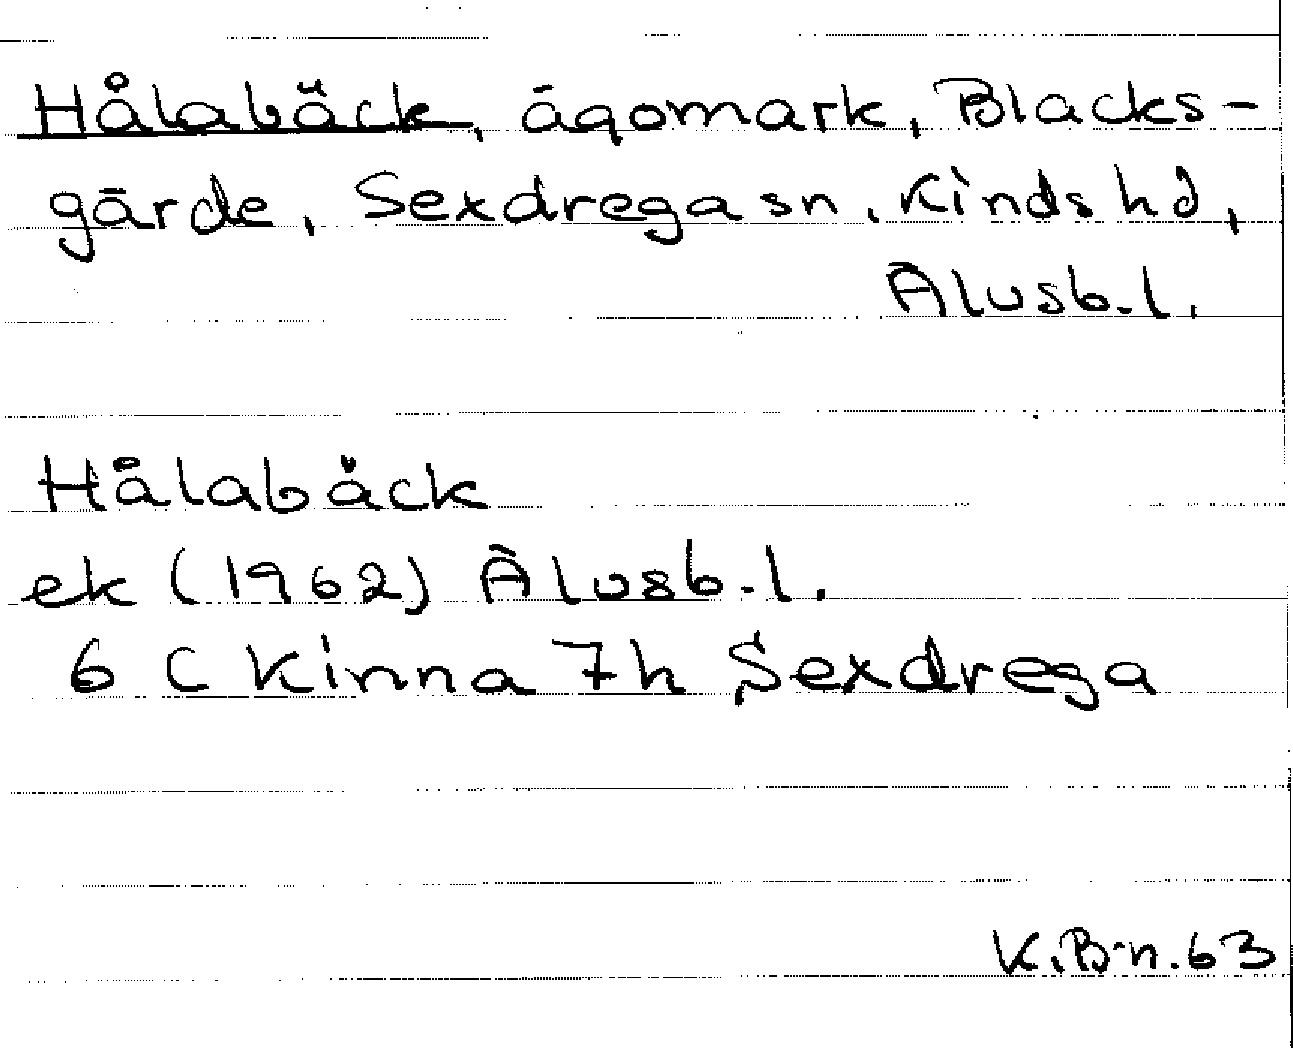 Hålabäck, ägomark, Blacks-
gärde, Sexdrega sn, Kinds hd,
Älvsb. l.
Hålabäck
ek (1962) Älvsb. l.
6 C Kinna 7h Sexdrega
K.B-n. 63